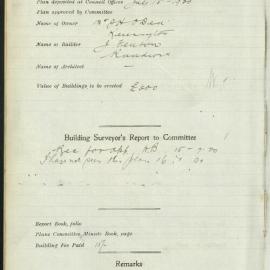 Plan deposited at Council Offices July 15 - 1920
Plan approved by Committee
Name of Owner Mr
Kensington
Name of Builder J
Randwick
Name of Architect —
Value of Buildings to be erected £800
Building Surveyor's Report to Committee
Rec for app AB 15-7-20
this plan 16
Report Book, folio
Plans Committee Minute Book, page
Building Fee Paid
Remarks